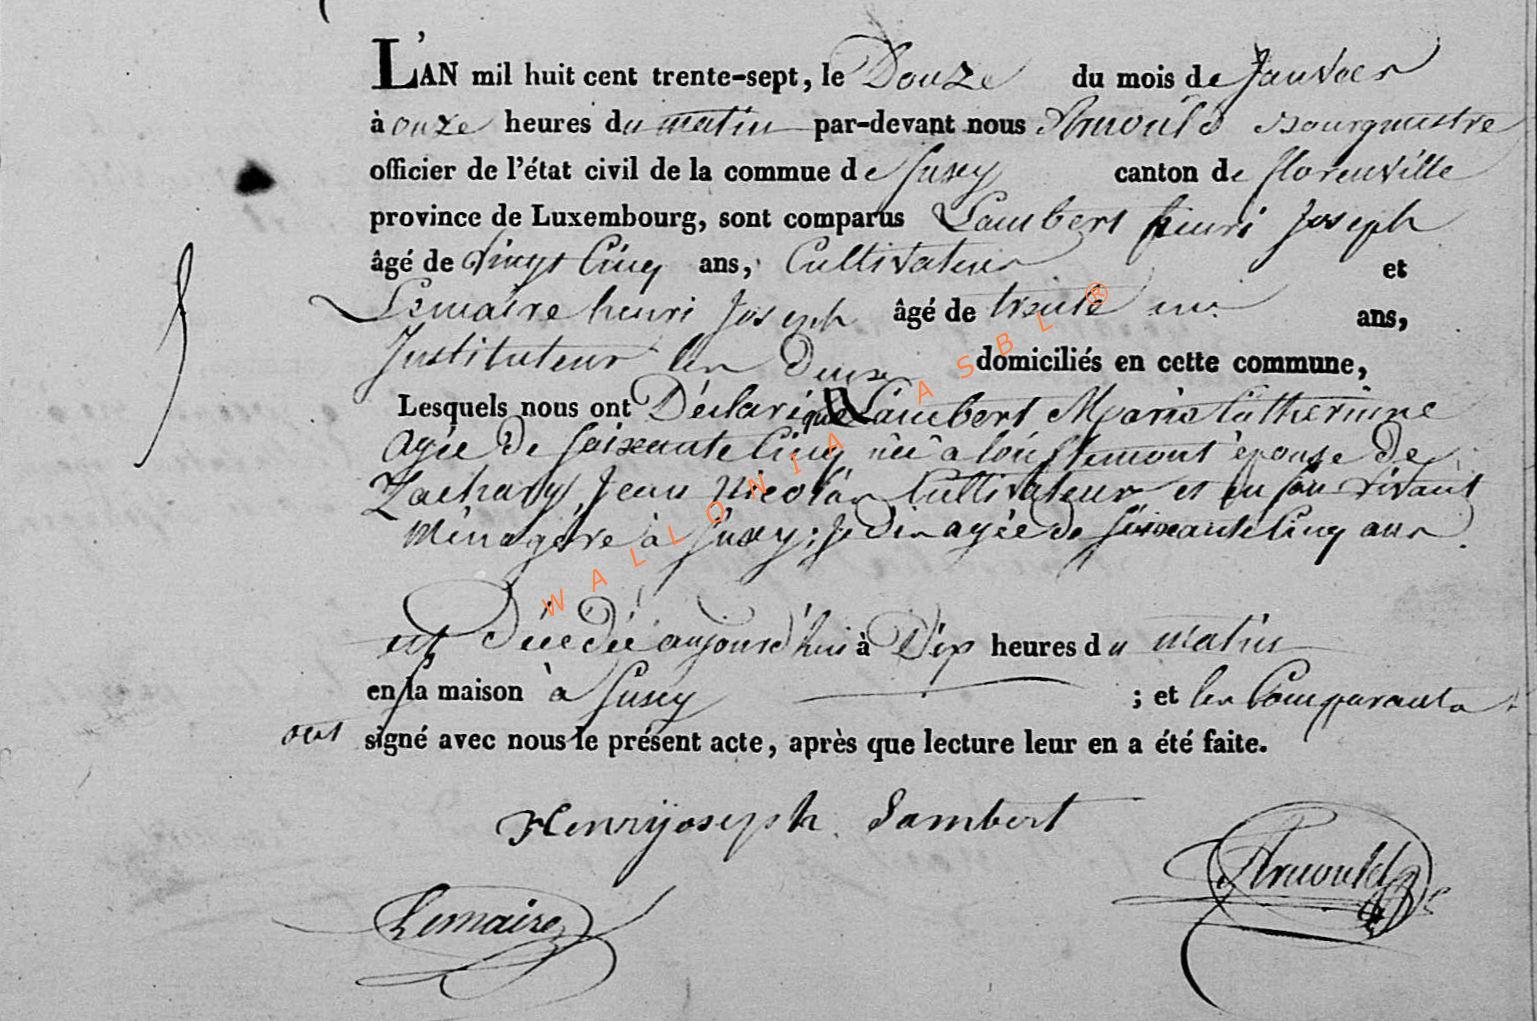 L'AN mil huit cent trente-sept, le Douze du mois de Janvier
à onze heures du matin par-devant nous Arnould Bourgmestre
officier de l'état civil de la commue de Suxy canton de florenville
province de Luxembourg, sont comparus Lambert henri Joseph
âgé de vingt Cinq ans, Cultivateur et
Lemaire henri Joseph âgé de trente un ans,
Instituteur les Deux domiciliés en cette commune,
Lesquels nous ont Déclaré que Lambert Marie Catherinne
agée de soixante Cinq née à épouse de
Zachary Jean Nicolas Cultivateur et en son vivant
Ménagére à Suxy; Je Dis agée de soixante Cinq ans.
est Décedée aujourd'hui à Dix heures du matin
en sa maison à Suxy ; et les Comparants
ont signé avec nous le présent acte, après que lecture leur en a été faite.
Henryjoseph Lambert
Arnould
Lemaire
WALLONIA ASBL ®